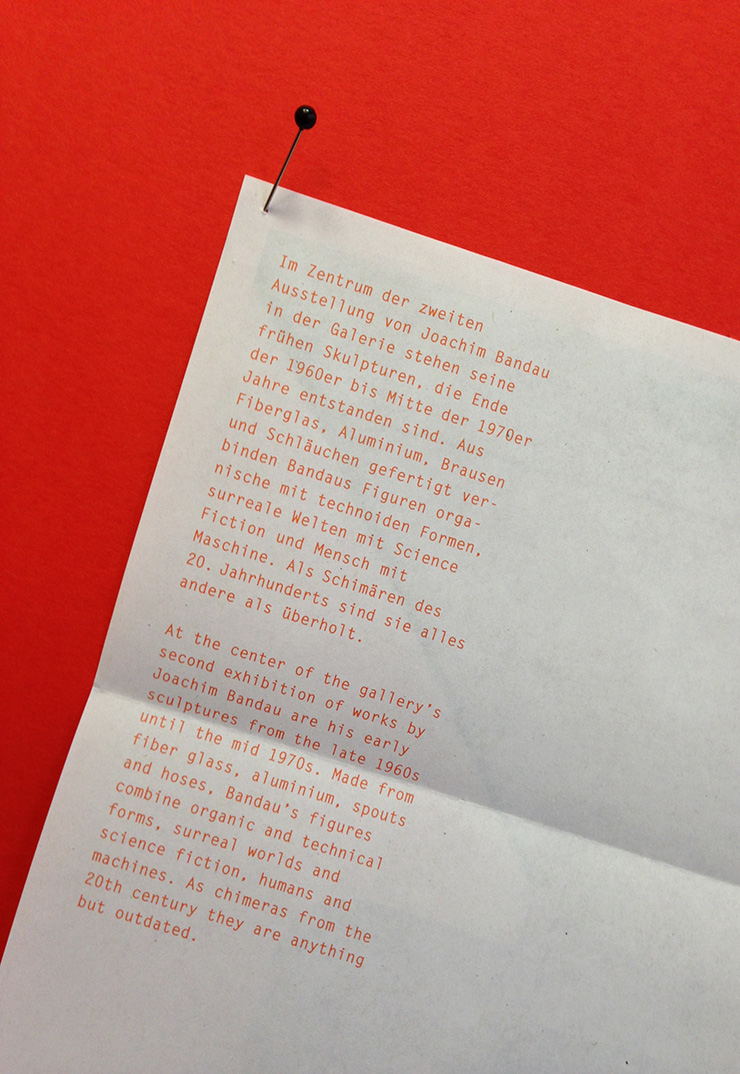 Im Zentrum der zweiten
Ausstellung von Joachim Bandau
in der Galerie stehen seine
frühen Skulpturen, die Ende
der 1960er bis Mitte der 1970er
Jahre entstanden sind. Aus
Fiberglas, Aluminium, Brausen
und Schläuchen gefertigt ver-
binden Bandaus Figuren orga-
nische mit technoiden Formen,
surreale Welten mit Science
Fiction und Mensch mit
Maschine. Als Schimären des
20. Jahrhunderts sind sie alles
andere als überholt.

At the center of the gallery's
second exhibition of works by
Joachim Bandau are his early
sculptures from the late 1960s
until the mid 1970s. Made from
fiber glass, aluminium, spouts
and hoses, Bandau's figures
combine organic and technical
forms, surreal worlds and
science fiction, humans and
machines. As chimeras from the
20th century they are anything
but outdated.